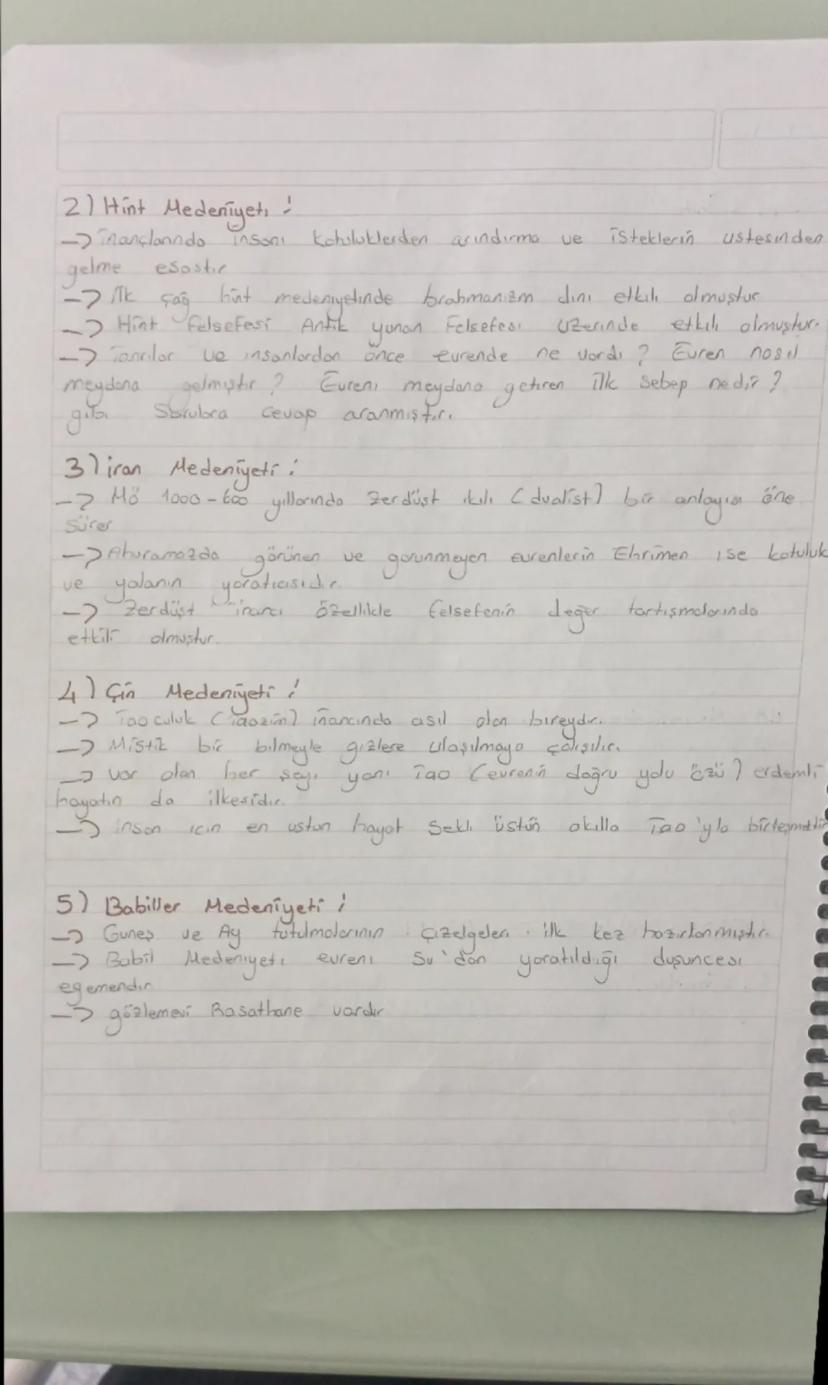 2) Hint Medeniyeti :
-> inançlarında insanı kötülüklerden arındırma ve isteklerin üstesinden
gelme esastır
-> İlk çağ hint medeniyetinde brahmanizm dini etkili olmuştur
-> Hint felsefesi Antik yunan Felsefesi üzerinde etkili olmuştur.
-> Tanrılar ve insanlardan önce evrende ne vardı ? Evren nasıl
meydana gelmiştir ? Evreni meydana getiren ilk sebep nedir ?
gibi cevap aranmıştır.
3) iran Medeniyeti :
-> Mö 1000-600 yıllarında zerdüşt ikili (dualist) bir anlayışı öne
sürer
-> Ahuramazda görünen ve görunmeyen evrenlerin Ehrimen ise kötuluk
ve yalanın yaratıcısıdır.
-> Zerdüşt inancı özellikle felsefenin değer tartışmalarında
etkili olmuştur.
4) Çin Medeniyeti :
-> Taoculuk (Taozim) inancında asıl olan bireydir.
-> Mistik bir bilmeyle gizlere ulaşılmaya çalışılır.
-> var olan her şeyi yani Tao (evrenin doğru yolu özü) erdemli
hayatın da ilkesidir.
-> insan icin en ustun hayat sekli üstün akılla Tao'yla
5) Babiller Medeniyeti :
-> Guneş ve Ay tutulmalarının çizelgeleri ilk kez hazırlanmıştır.
-> Babil Medeniyeti evreni Su'dan yaratıldığı duşuncesi
egemendir
-> gözlemevi Rasathane vardır